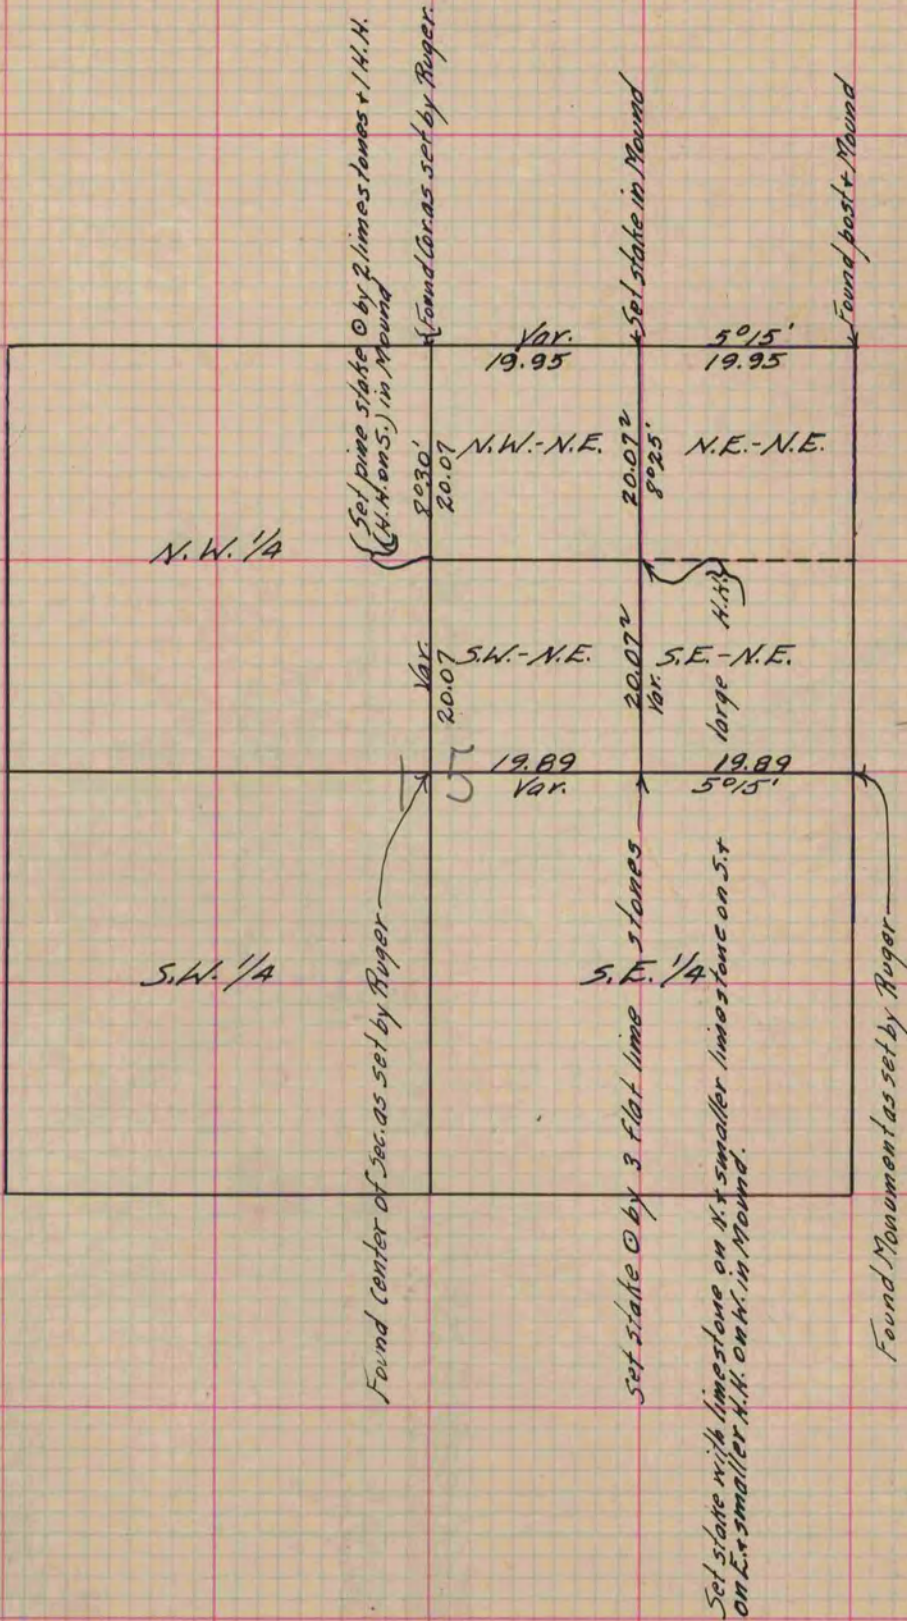 {Set pine stake ⊙ by 2 limestones + 1 H.H.
(H.H. on S.) in Mound
Found Cor. as set by Ruger.
Set stake in Mound
Found post & Mound
Var.
19.95
5°15'
19.95
8°30'
20.07
N.W.-N.E.
20.07²
8°25'
N.E.-N.E.
N.W. 1/4
Var.
20.07
S.W.-N.E.
20.07²
Var.
S.E.-N.E.
large H.H.
5
19.89
Var.
19.89
5°15'
S.W. 1/4
S.E. 1/4
Found center of Sec. as set by Ruger
Set stake ⊙ by 3 flat lime stones
Set stake with limestone on N. + smaller limestone on S. +
on E. + smaller H.H. on W. in Mound.
Found Monument as set by Ruger